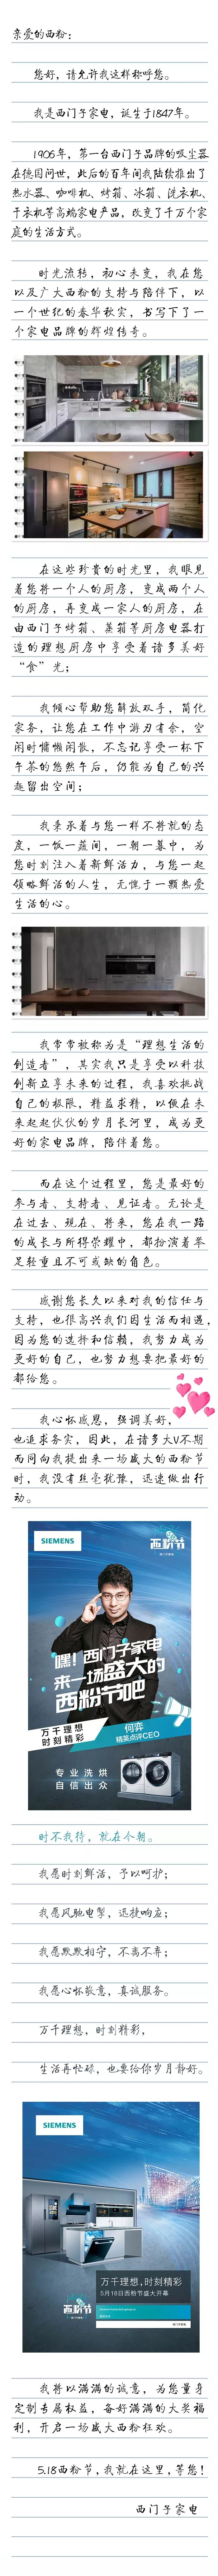 亲爱的西粉：
您好，请允许我这样称呼您。
我是西门子家电，诞生于1847年。
1906年，第一台西门子品牌的吸尘器
在德国问世，此后的百年间我陆续推出了
热水器、咖啡机、烤箱、冰箱、洗衣机、
干衣机等高端家电产品，改变了千万个家
庭的生活方式。
时光流转，初心未变，我在您
以及广大西粉的支持与陪伴下，以
一个世纪的春华秋实，书写下了一
个家电品牌的辉煌传奇。
在这些珍贵的时光里，我眼见
着您将一个人的厨房，变成两个人
的厨房，再变成一家人的厨房，在
由西门子烤箱、蒸箱等厨房电器打
造的理想厨房中享受着诸多美好
“食”光；
我倾心帮助您解放双手，简化
家务，让您在工作中游刃有余，空
闲时慵懒闲散，不忘记享受一杯下
午茶的悠然午后，仍能为自己的兴
趣留出空间；
我秉承着与您一样不将就的态
度，一饭一蔬间，一朝一暮中，为
您时刻注入着新鲜活力，与您一起
领略鲜活的人生，无愧于一颗热爱
生活的心。
我常常被称为是“理想生活的
创造者”，其实我只是享受以科技
创新立享未来的过程，我喜欢挑战
自己的极限，精益求精，以便在未
来起起伏伏的岁月长河里，成为更
好的家电品牌，陪伴着您。
而在这个过程里，您是最好的
参与者、支持者、见证者。无论是
在过去、现在、将来，您在我一路
的成长与所得荣耀中，都扮演着举
足轻重且不可或缺的角色。
感谢您长久以来对我的信任与
支持，也很高兴我们因生活而相遇，
因为您的选择和信赖，我努力成为
更好的自己，也努力想要把最好的
都给您。
我心怀感恩，强调美好，
也追求务实，因此，在诸多大V不期
而同向我提出来一场盛大的西粉节
时，我没有丝毫犹豫，迅速做出行
动。
SIEMENS
西粉节
嘿！西门子家电
来一场盛大的
西粉节吧
万千理想
时刻精彩
何弈
精英点评CEO
专业洗烘
自信出众
时不我待，就在今朝。
我愿时刻鲜活，予以呵护；
我愿风驰电掣，迅捷响应；
我愿默默相守，不离不弃；
我愿心怀敬意，真诚服务。
万千理想，时刻精彩，
生活再忙碌，也要给你岁月静好。
SIEMENS
万千理想，时刻精彩
5月18日西粉节盛大开幕
西粉节
我将以满满的诚意，为您量身
定制专属权益，备好满满的大奖福
利，开启一场盛大西粉狂欢。
5.18西粉节，我就在这里，等您！
西门子家电